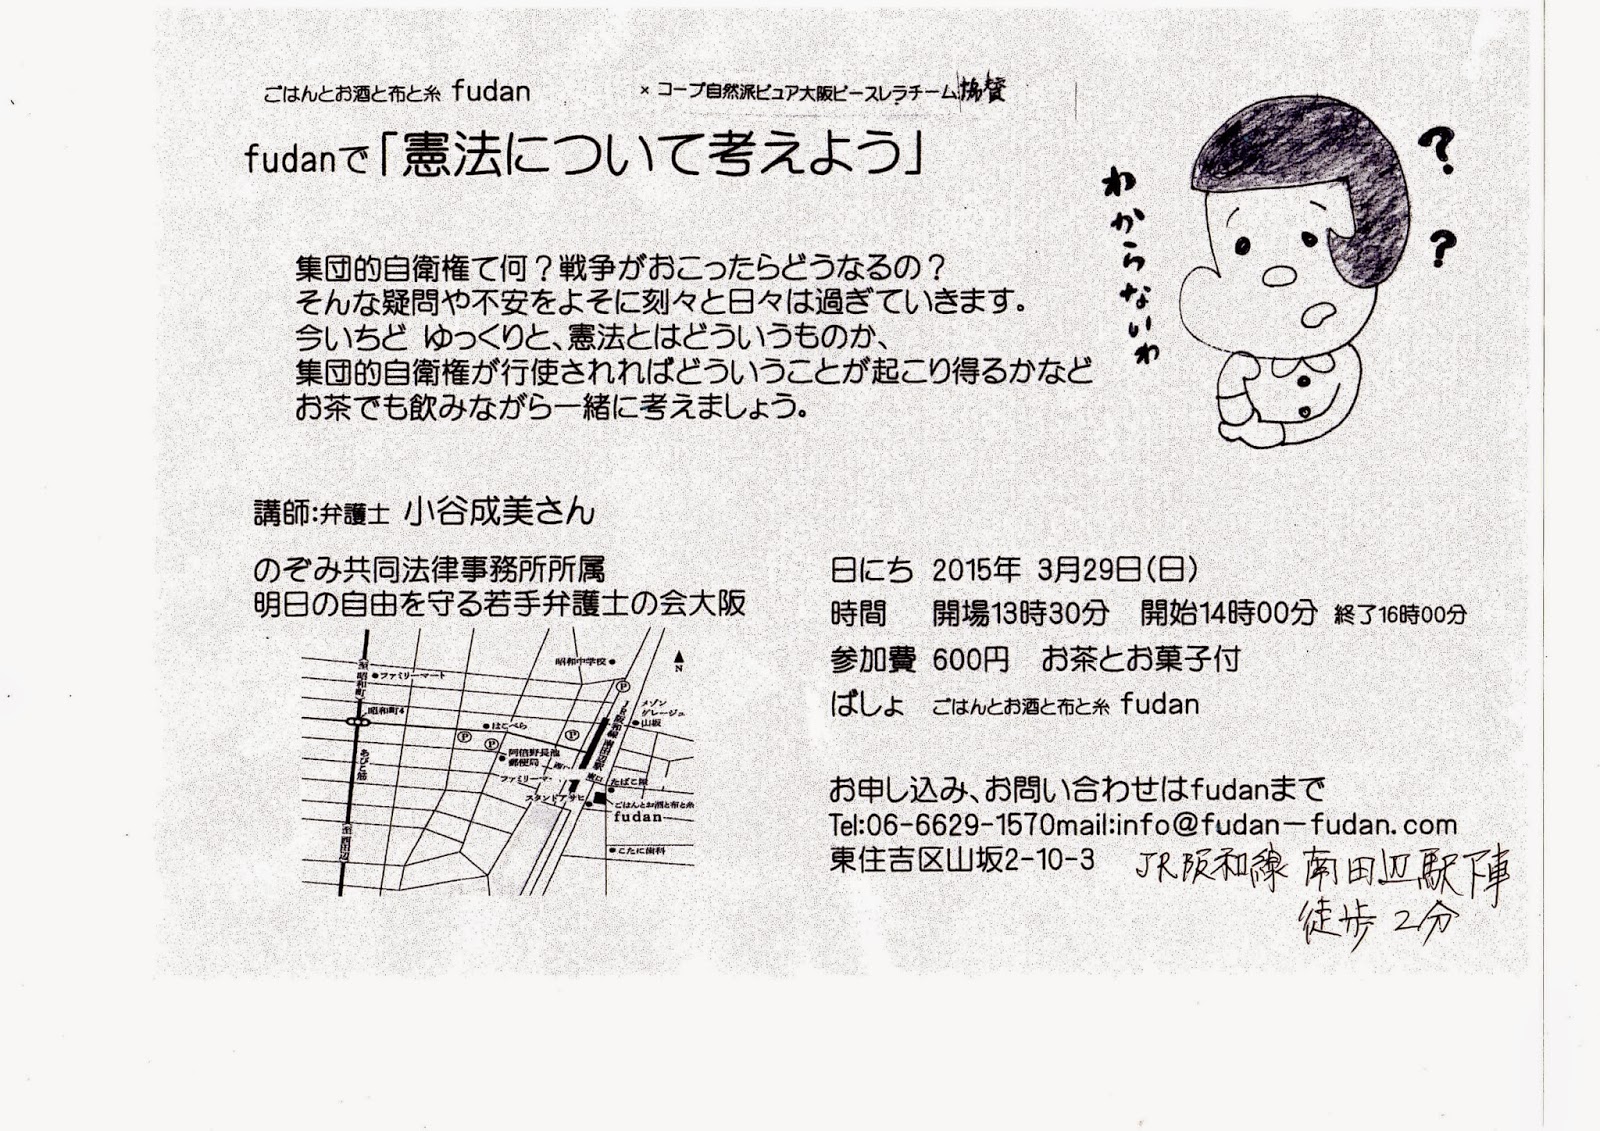 ごはんとお酒と布と糸 fudan × コープ自然派ピュア大阪ピースレラチーム協賛
fudanで「憲法について考えよう」
わからないわ
? ?
集団的自衛権て何?戦争がおこったらどうなるの?
そんな疑問や不安をよそに刻々と日々は過ぎていきます。
今いちど ゆっくりと、憲法とはどういうものか、
集団的自衛権が行使されればどういうことが起こり得るかなど
お茶でも飲みながら一緒に考えましょう。
講師:弁護士 小谷成美さん
のぞみ共同法律事務所所属
明日の自由を守る若手弁護士の会大阪
日にち 2015年 3月29日(日)
時間 開場13時30分 開始14時00分 終了16時00分
参加費 600円 お茶とお菓子付
ばしょ ごはんとお酒と布と糸 fudan
お申し込み、お問い合わせはfudanまで
Tel:06-6629-1570mail:info@fudan-fudan.com
東住吉区山坂2-10-3 JR阪和線 南田辺駅下車
徒歩2分
昭和中学校
N
至昭和町
ファミリーマート
P
メゾン
グレージュ
山坂
昭和町4
はこべら
P
P
P
JR阪和線 南田辺駅
阿倍野長池
郵便局
あびこ筋
ファミリーマー
西口
東口
たばこ屋
スタンドアサヒ
ごはんとお酒と布と糸
fudan
至西田辺
こたに歯科